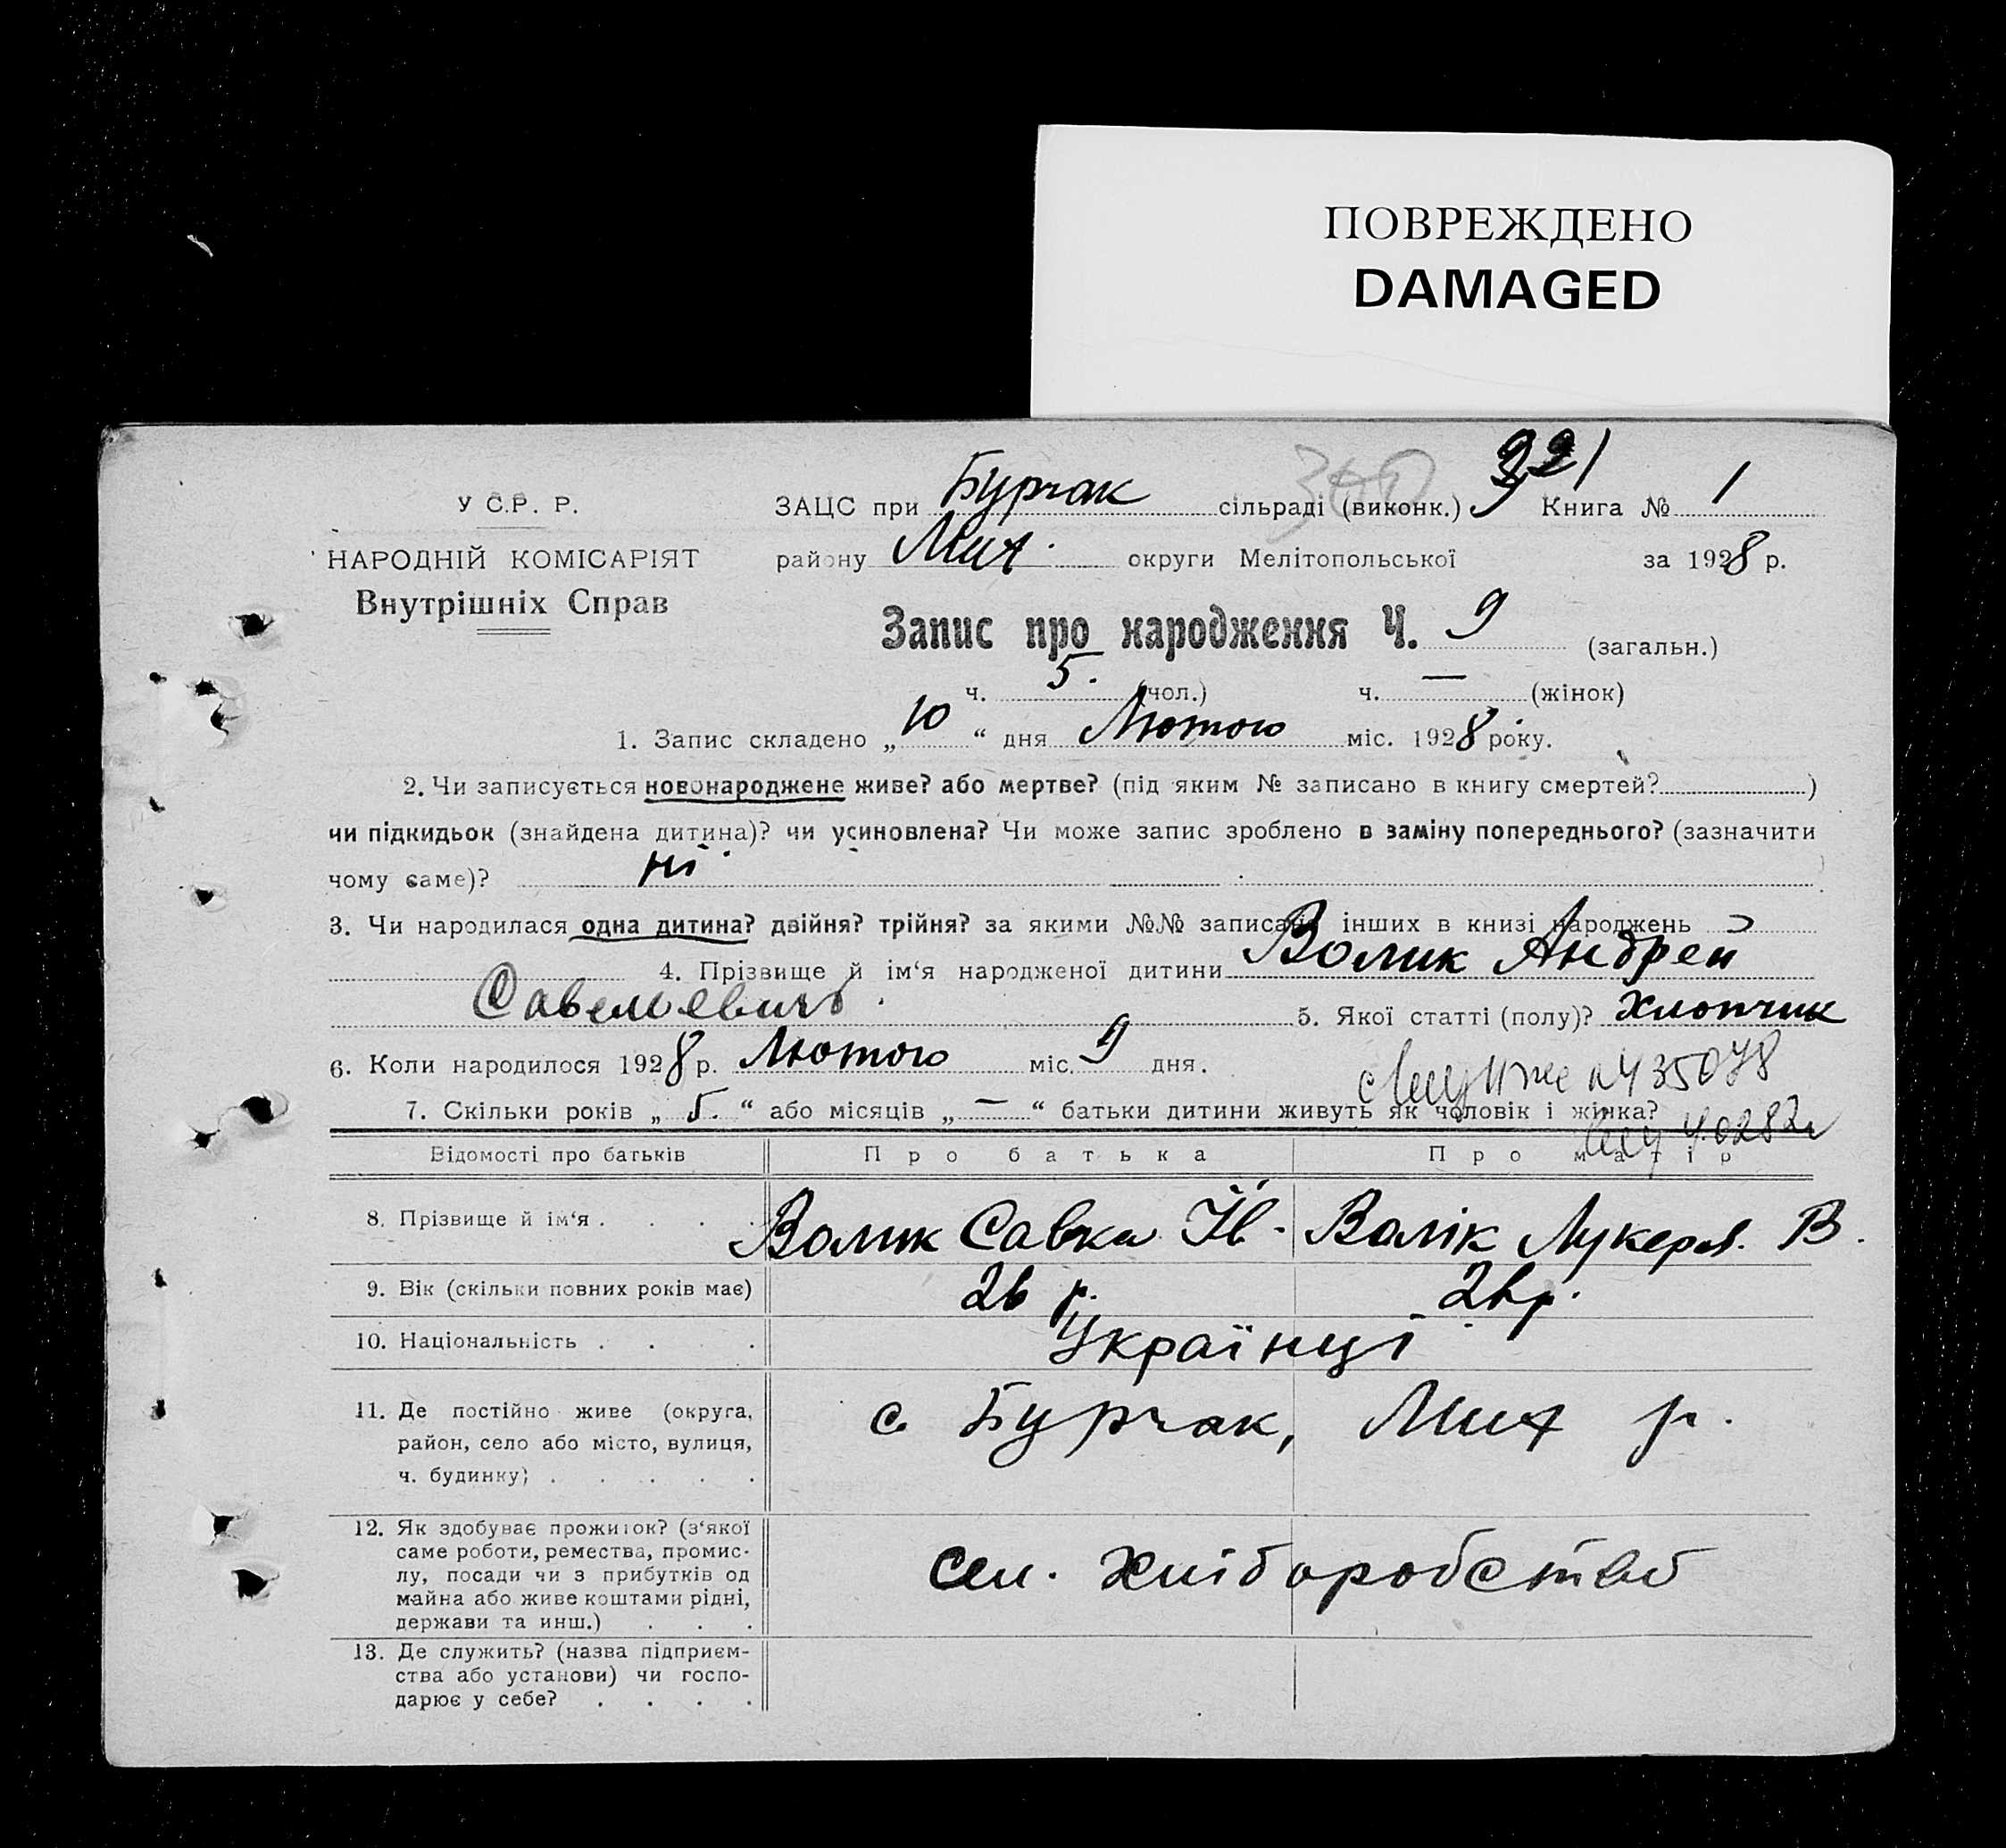 ПОВРЕЖДЕНО
DAMAGED
У С.Р. Р.
НАРОДНІЙ КОМІСАРІЯТ
Внутрішніх Справ
ЗАЦС при Бурчак сільраді (виконк.) Книга № 1
району Мих. округи Мелітопольської за 1928 р.
Запис про народження Ч. 9 (загальн.)
ч. 5. (чол.) ч. — (жінок)
1. Запис складено „ 10 “ дня Лютого міс. 1928 року.
2. Чи записується новонароджене живе? або мертве? (під яким № записано в книгу смертей? )
чи підкидьок (знайдена дитина)? чи усиновлена? Чи може запис зроблено в заміну попереднього? (зазначити
чому саме)? ні
3. Чи народилася одна дитина? двійня? трійня? за якими №№ записано інших в книзі народжень
4. Прізвище й ім‘я народженої дитини Волик Андрей
Савельевичь 5. Якої статті (полу)? Хлопчик
6. Коли народилося 1928 р. Лютого міс. 9 дня.
7. Скільки років „ 5. “ або місяців „ — “ батьки дитини живуть як чоловік і жінка?
Відомості про батьків Про батька Про матір
8. Прізвище й ім‘я . . . . Волик Савка Волік Лукеря. В.
9. Вік (скільки повних років має) 26 р. р.
10. Національність . . . . Українці
11. Де постійно живе (округа,
район, село або місто, вулиця,
ч. будинку) . . . . .
с Бурчак, Мих р.
12. Як здобуває прожиток? (з‘якої
саме роботи, ремества, промис-
лу, посади чи з прибутків од
майна або живе коштами рідні,
держави та инш.) . . .
Сел. Хліборобство
13. Де служить? (назва підприєм-
ства або установи) чи госпо-
дарює у себе? . . . .